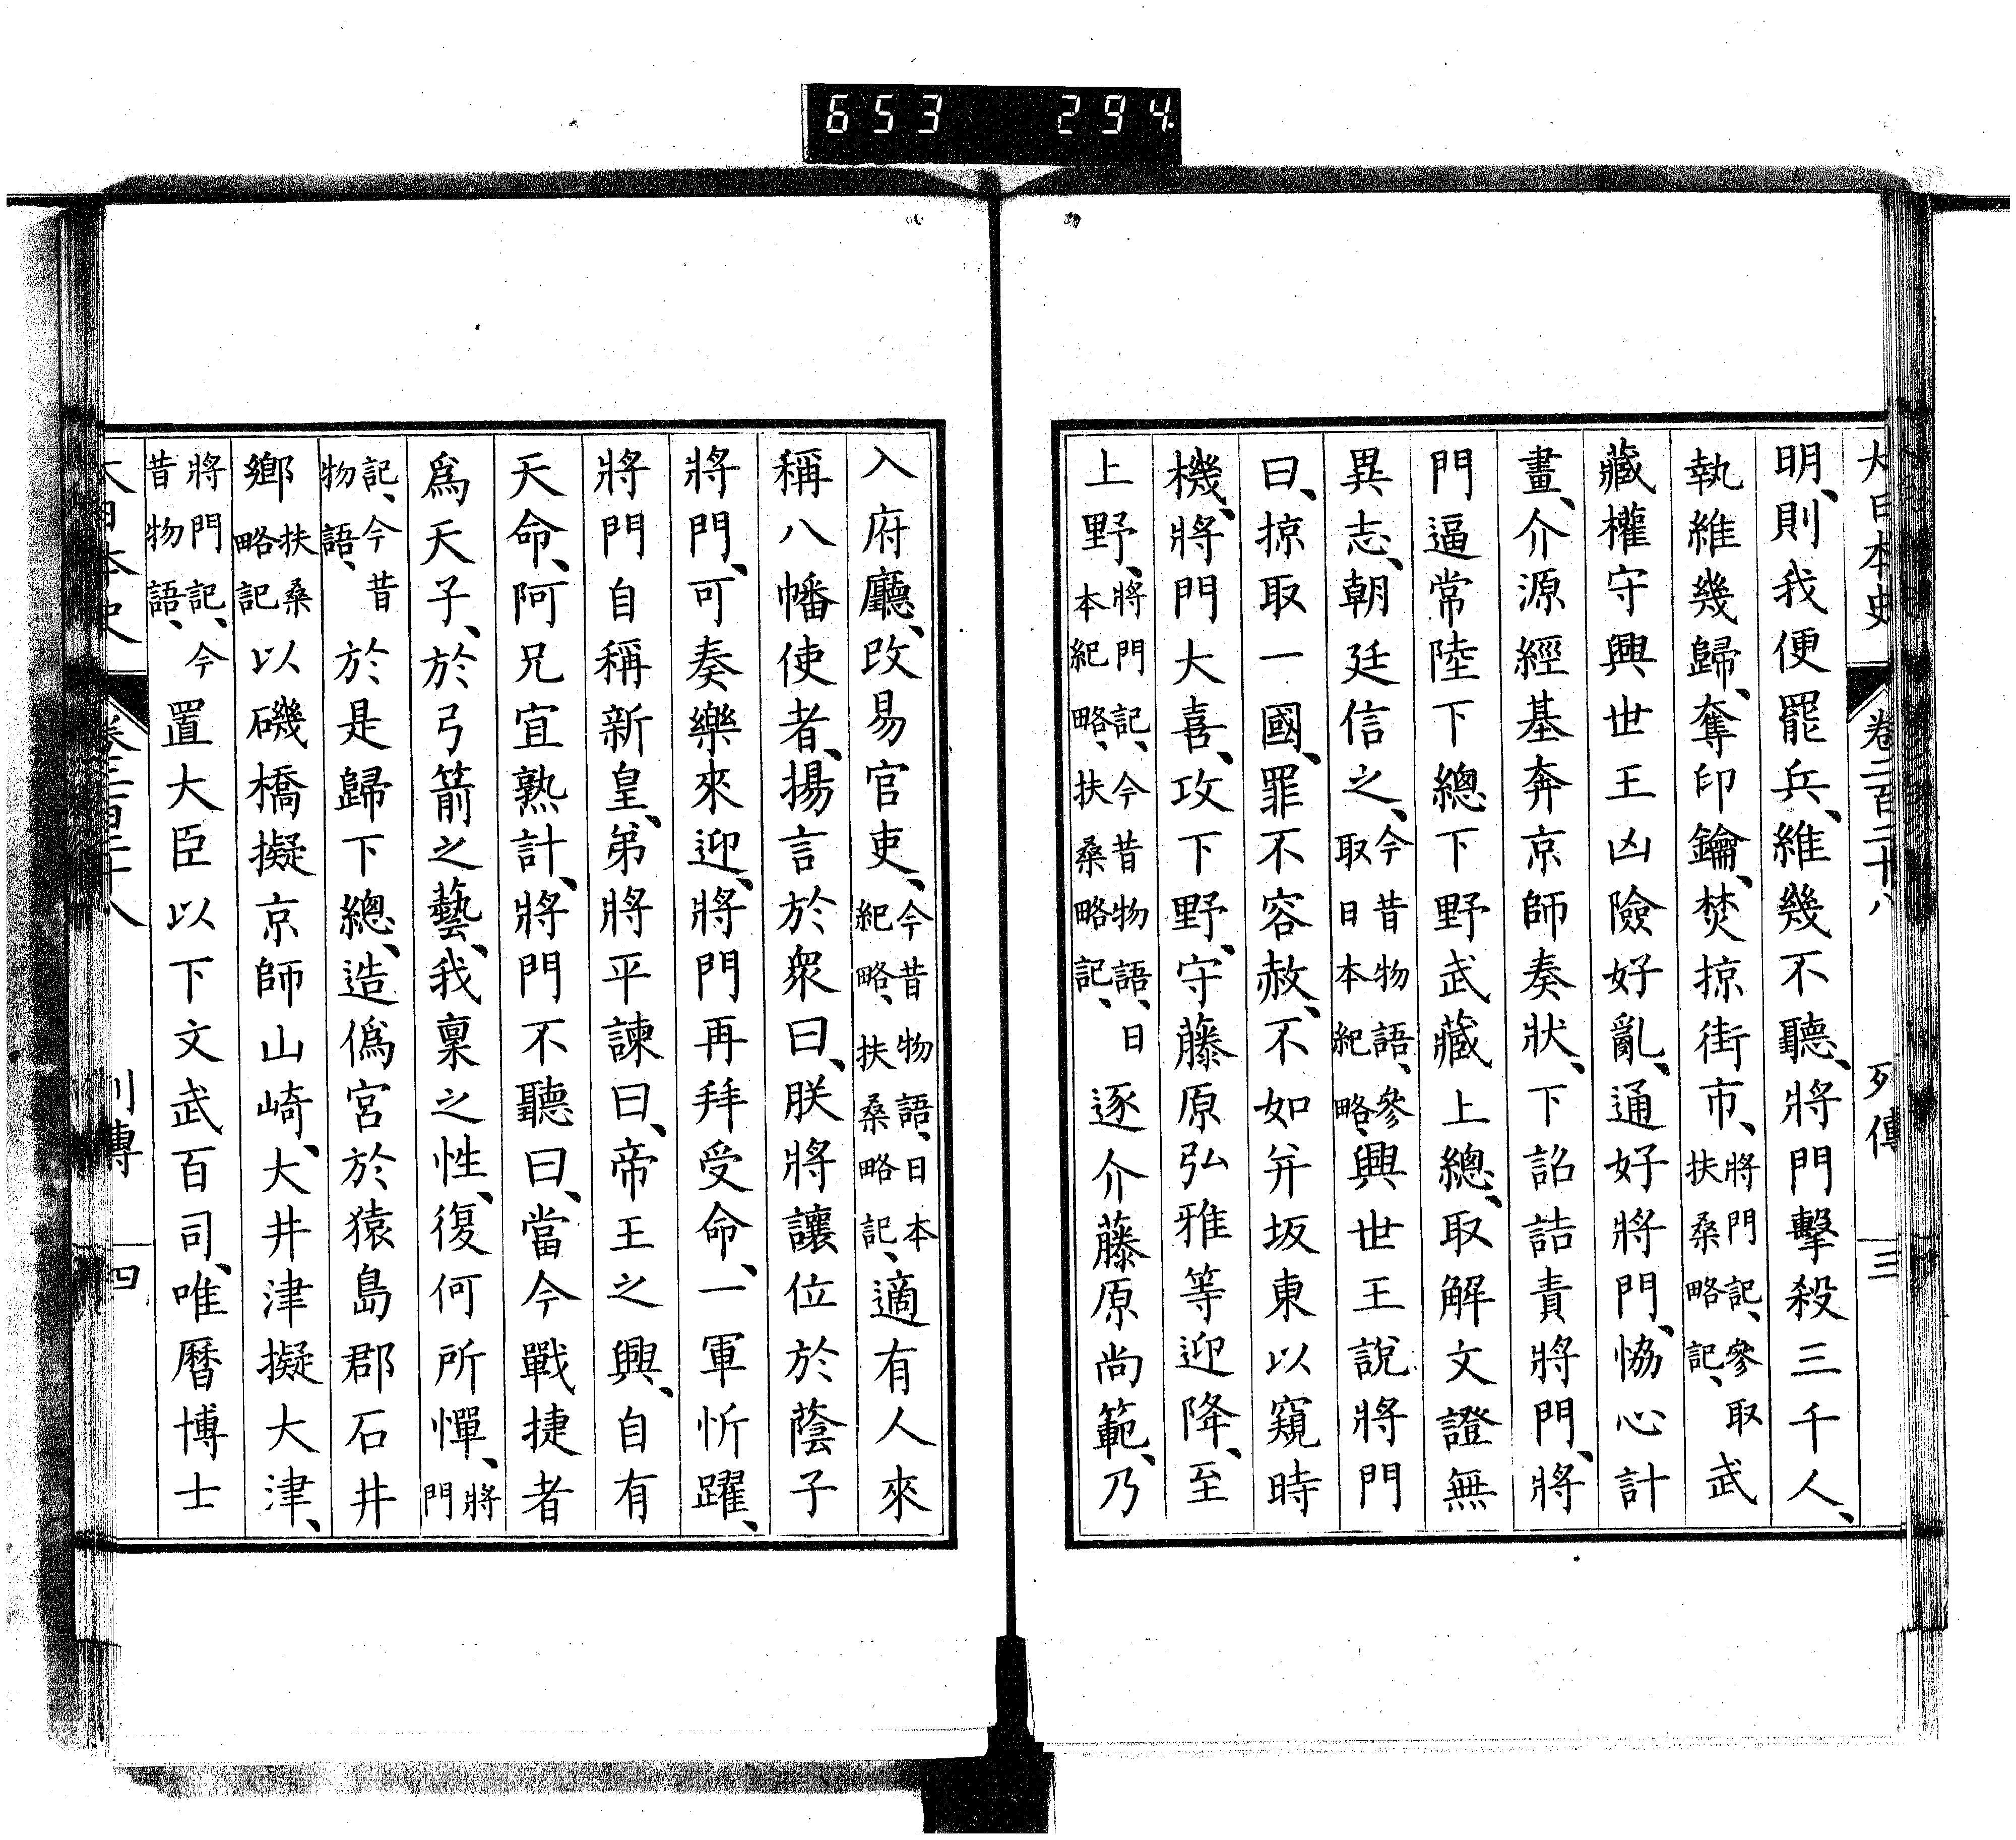 653 294
大日本史 卷二百二十八 列傳 三
明、則我便罷兵、維幾不聽、將門擊殺三千人、
執維幾歸、奪印鑰、焚掠街市、將門記、參取扶桑略記、武
藏權守興世王凶險好亂、通好將門、恊心計
畫、介源經基奔京師奏狀、下詔詰責將門、將
門逼常陸下總下野武藏上總、取解文證無
異志、朝廷信之、今昔物語、參取日本紀略、興世王說將門
曰、掠取一國、罪不容赦、不如并坂東以窺時
機、將門大喜、攻下野、守藤原弘雅等迎降、至
上野、將門記、今昔物語、日本紀略、扶桑略記、逐介藤原尚範、乃
入府廳、改易官吏、今昔物語、日本紀略、扶桑略記、適有人來
稱八幡使者、揚言於衆曰、朕將讓位於蔭子
將門、可奏樂來迎、將門再拜受命、一軍忻躍、
將門自稱新皇、弟將平諫曰、帝王之興、自有
天命、阿兄宜熟計、將門不聽曰、當今戰捷者
爲天子、於弓箭之藝、我稟之性、復何所憚、將門
記、今昔物語、於是歸下總、造僞宮於猿島郡石井
鄉扶桑略記以磯橋擬京師山崎、大井津擬大津、
將門記、今昔物語、置大臣以下文武百司、唯曆博士
大日本史 卷二百二十八 列傳 四